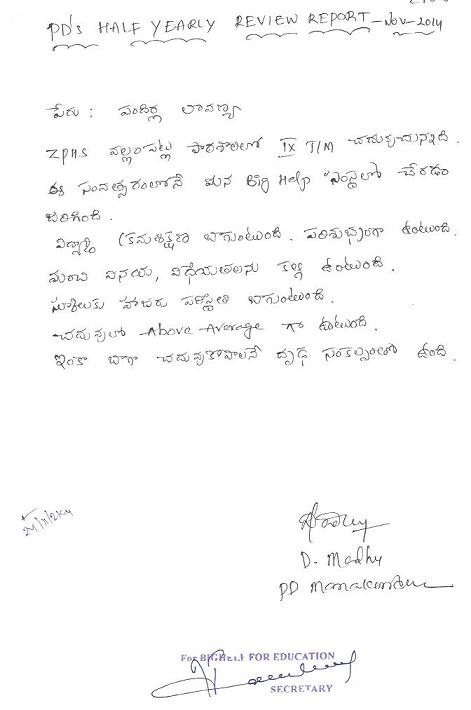 PD's HALF YEARLY REVIEW REPORT - Nov - 2014
పేరు : పందిర్ల లావణ్య
ZPHS వల్లంపట్ల పాఠశాలలో IX T/M చదువుచున్నది
ఈ సంవత్సరంలోనే మన Big Help సంస్థలో చేరడం
జరిగింది.
విద్యార్థి క్రమశిక్షణ బాగుంటుంది. పరిశుభ్రంగా ఉంటుంది.
మంచి వినయ, విధేయతలను కల్గి ఉంటుంది.
స్కూలుకు హాజరు పరిస్థితి బాగుంటుంది.
చదువులో Above Average గా ఉంటుంది.
ఇంకా బాగా చదువుకోవాలనే దృఢ సంకల్పంతో ఉంది.
D. Madhy
PD
For BIGHELP FOR EDUCATION
SECRETARY